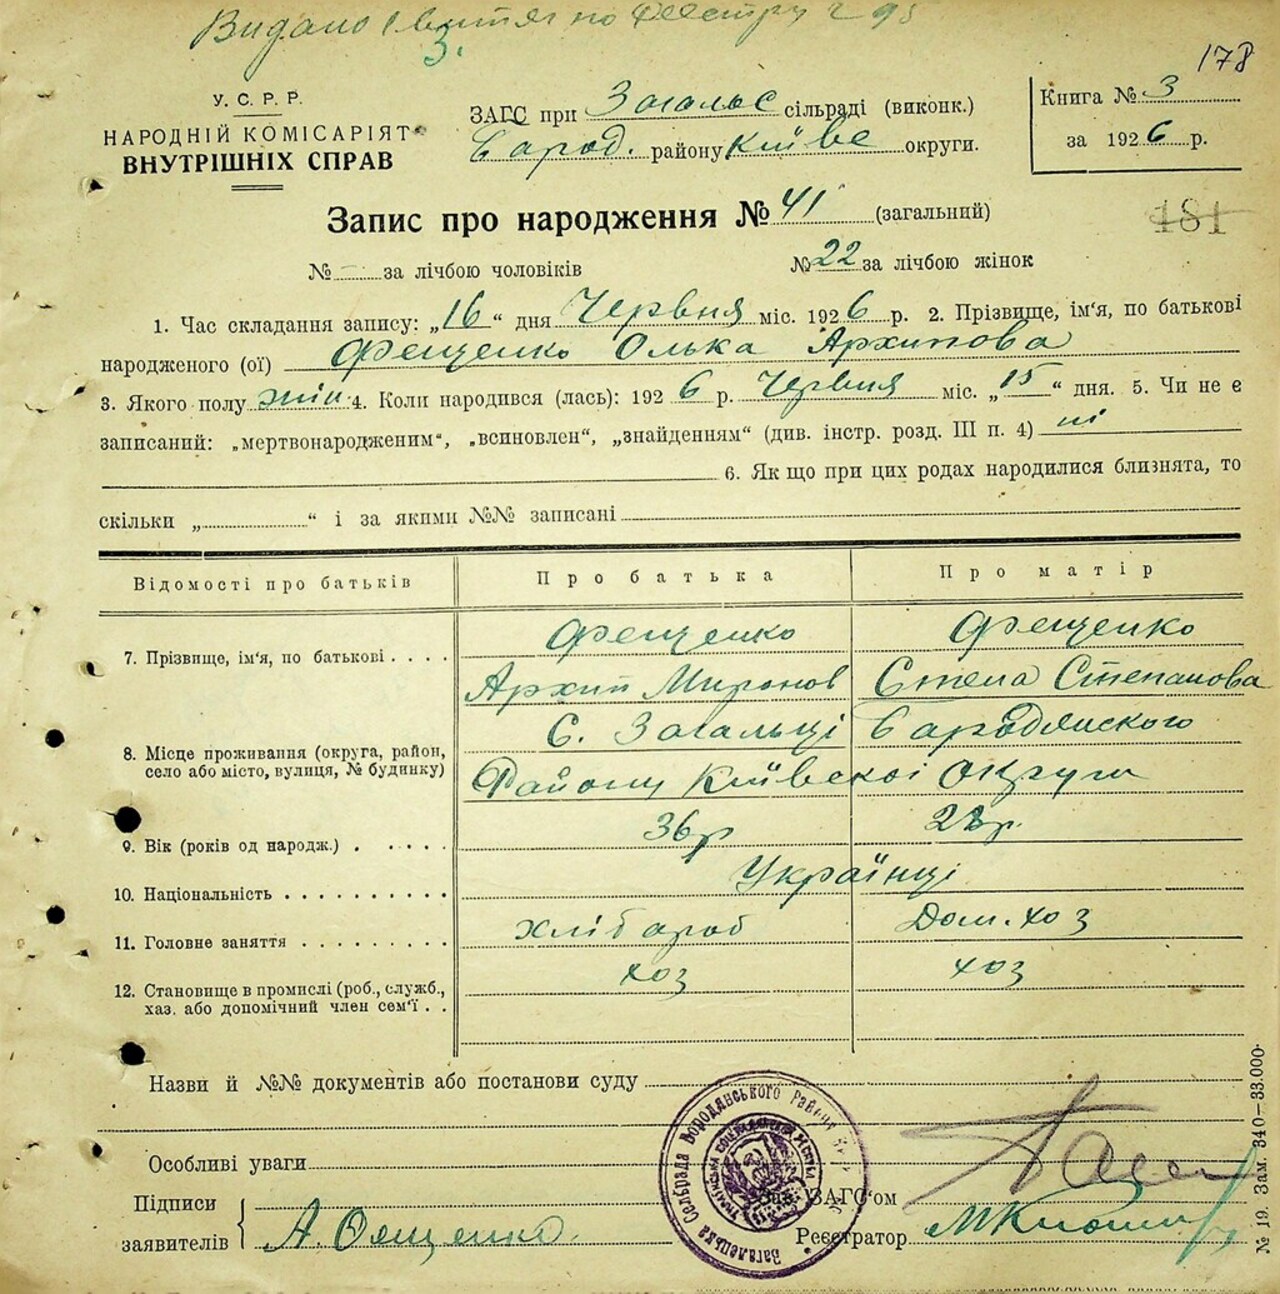 Видано витяг по реєстру
3.
178
У. С. Р. Р.
НАРОДНІЙ КОМІСАРІЯТ
ВНУТРІШНІХ СПРАВ
ЗАГС при Загальс сільраді (виконк.)
Барод. району Київс округи.
Книга № 3
за 1926 р.
Запис про народження № 41 (загальний)
181
№ — за лічбою чоловіків № 22 за лічбою жінок
1. Час складання запису: „16“ дня Червня міс. 1926 р. 2. Прізвище, ім'я, по батькові
народженого (ої) Фещенко Олька Архипова
3. Якого полу жін. 4. Коли народився (лась): 1926 р. Червня міс. „15“ дня. 5. Чи не є
записаний: „мертвонародженим“, „всиновлен“, „знайденням“ (див. інстр. розд. III п. 4) ні
6. Як що при цих родах народилися близнята, то
скільки „ “ і за якими №№ записані
Відомості про батьків Про батька Про матір
7. Прізвище, ім'я, по батькові . . . . Фещенко Фещенко
Архип Миронов Степанова
8. Місце проживання (округа, район,
село або місто, вулиця, № будинку)
С. Загальці Бародянского
Району Київскоі Округи
9. Вік (років од народж.) . . . . . 36р 28р.
10. Національність . . . . . . . . . Українці
11. Головне заняття . . . . . . . . . хлібароб Дом. хоз
12. Становище в промислі (роб., служб.,
хаз. або допомічний член сем'ї . . хоз хоз
Назви й №№ документів або постанови суду
Особливі уваги
Підписи
заявителів А. Фещенко
Загалецька Сельрада Бородянського Району
Зав. ЗАГС'ом
Реєстратор
№ 19. Зам. 340—33.000.